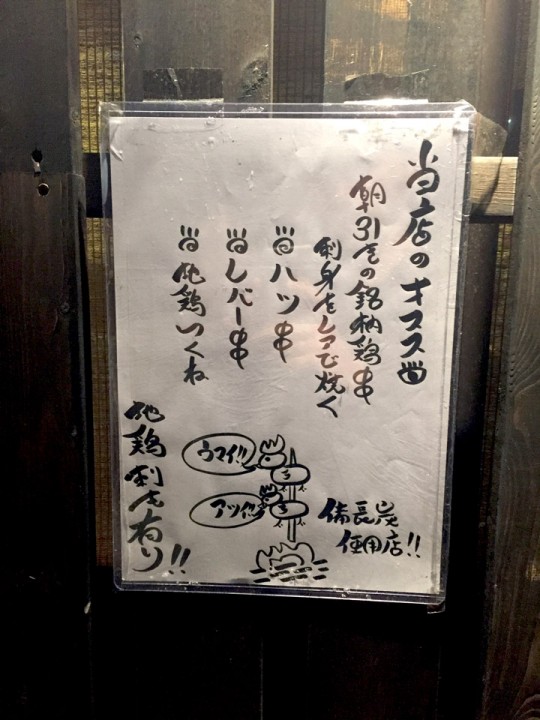 当店のオススメ
朝引きの銘柄鶏串
刺身をレアで焼く
ハツ串
レバー串
地鶏つくね
地鶏刺しも有り!!
ウマイ!!
アツイ!!
備長炭
使用店!!